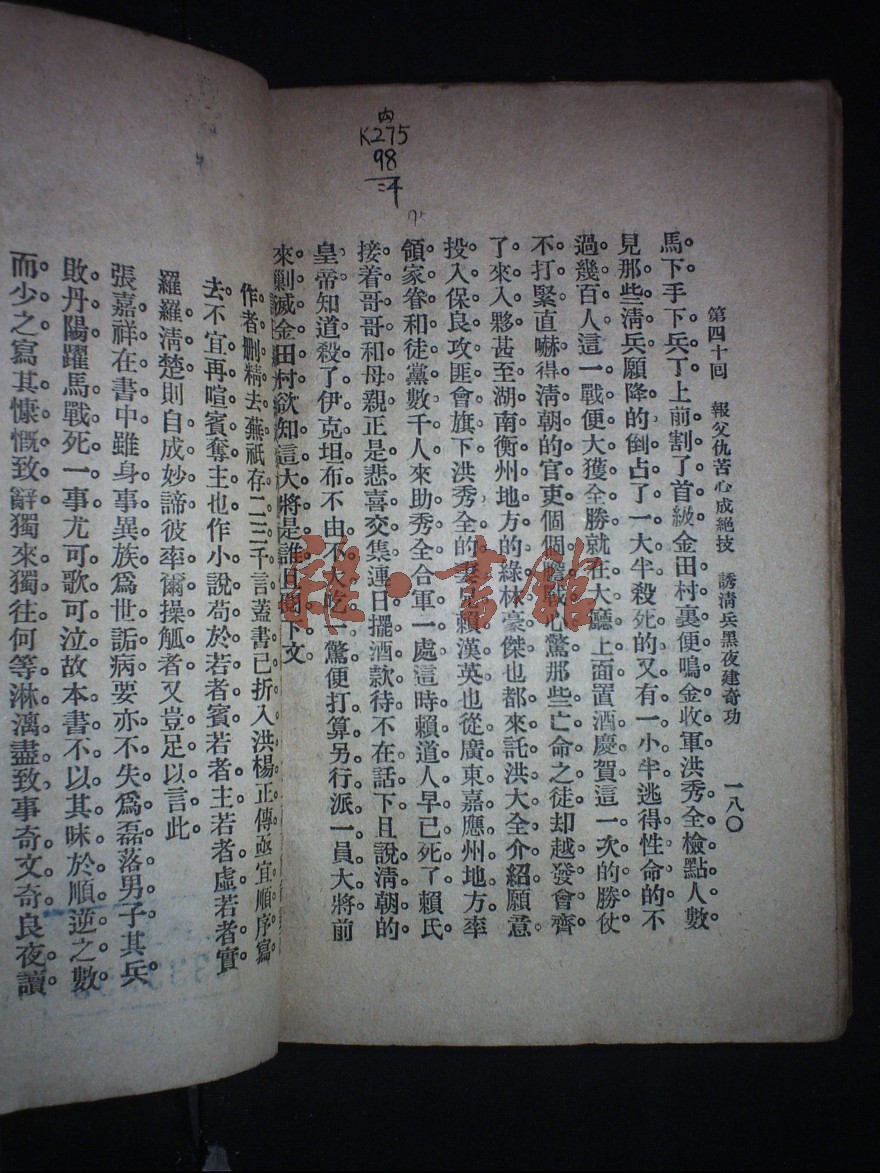 内
K275
98
第四十回　報父仇苦心成絕技　誘清兵黑夜建奇功　一八〇
馬。下手下兵丁上前割了首級。金田村裏便鳴金收軍。洪秀全檢點人數。
見那些清兵願降的倒占了一大半。殺死的又有一小半。逃得性命的不
過幾百人。這一戰便大獲全勝。就在大廳上面置酒慶賀。這一次的勝仗
不打緊。直嚇得清朝的官吏個個膽戰心驚。那些亡命之徒却越發會齊
了來入夥。甚至湖南衡州地方的綠林豪傑。也都來託洪大全介紹。願意
投入保良攻匪會旗下。洪秀全的妻兄賴漢英。也從廣東嘉應州地方率
領家眷和徒黨數千人。來助秀全。合軍一處。這時賴道人早已死了。賴氏
接着哥哥和母親。正是悲喜交集。連日擺酒款待。不在話下。且說清朝的
皇帝知道殺了伊克坦布。不由不大吃一驚。便打算另行派一員大將前
來剿滅金田村。欲知這大將是誰。且閱下文。
作者刪精去蕪。祇存二三千言。蓋書已折入洪楊正傳。亟宜順序寫
去。不宜再喧賓奪主也。作小說苟於若者賓。若者主。若者虛。若者實。
羅羅清楚。則自成妙諦。彼率爾操觚者。又豈足以言此。
張嘉祥在書中。雖身事異族。爲世詬病。要亦不失爲磊落男子。其兵
敗丹陽。躍馬戰死一事。尤可歌可泣。故本書不以其昧於順逆之數。
而少之。寫其慷慨致辭。獨來獨往。何等淋漓盡致。事奇文奇。良夜讀
雜·書館